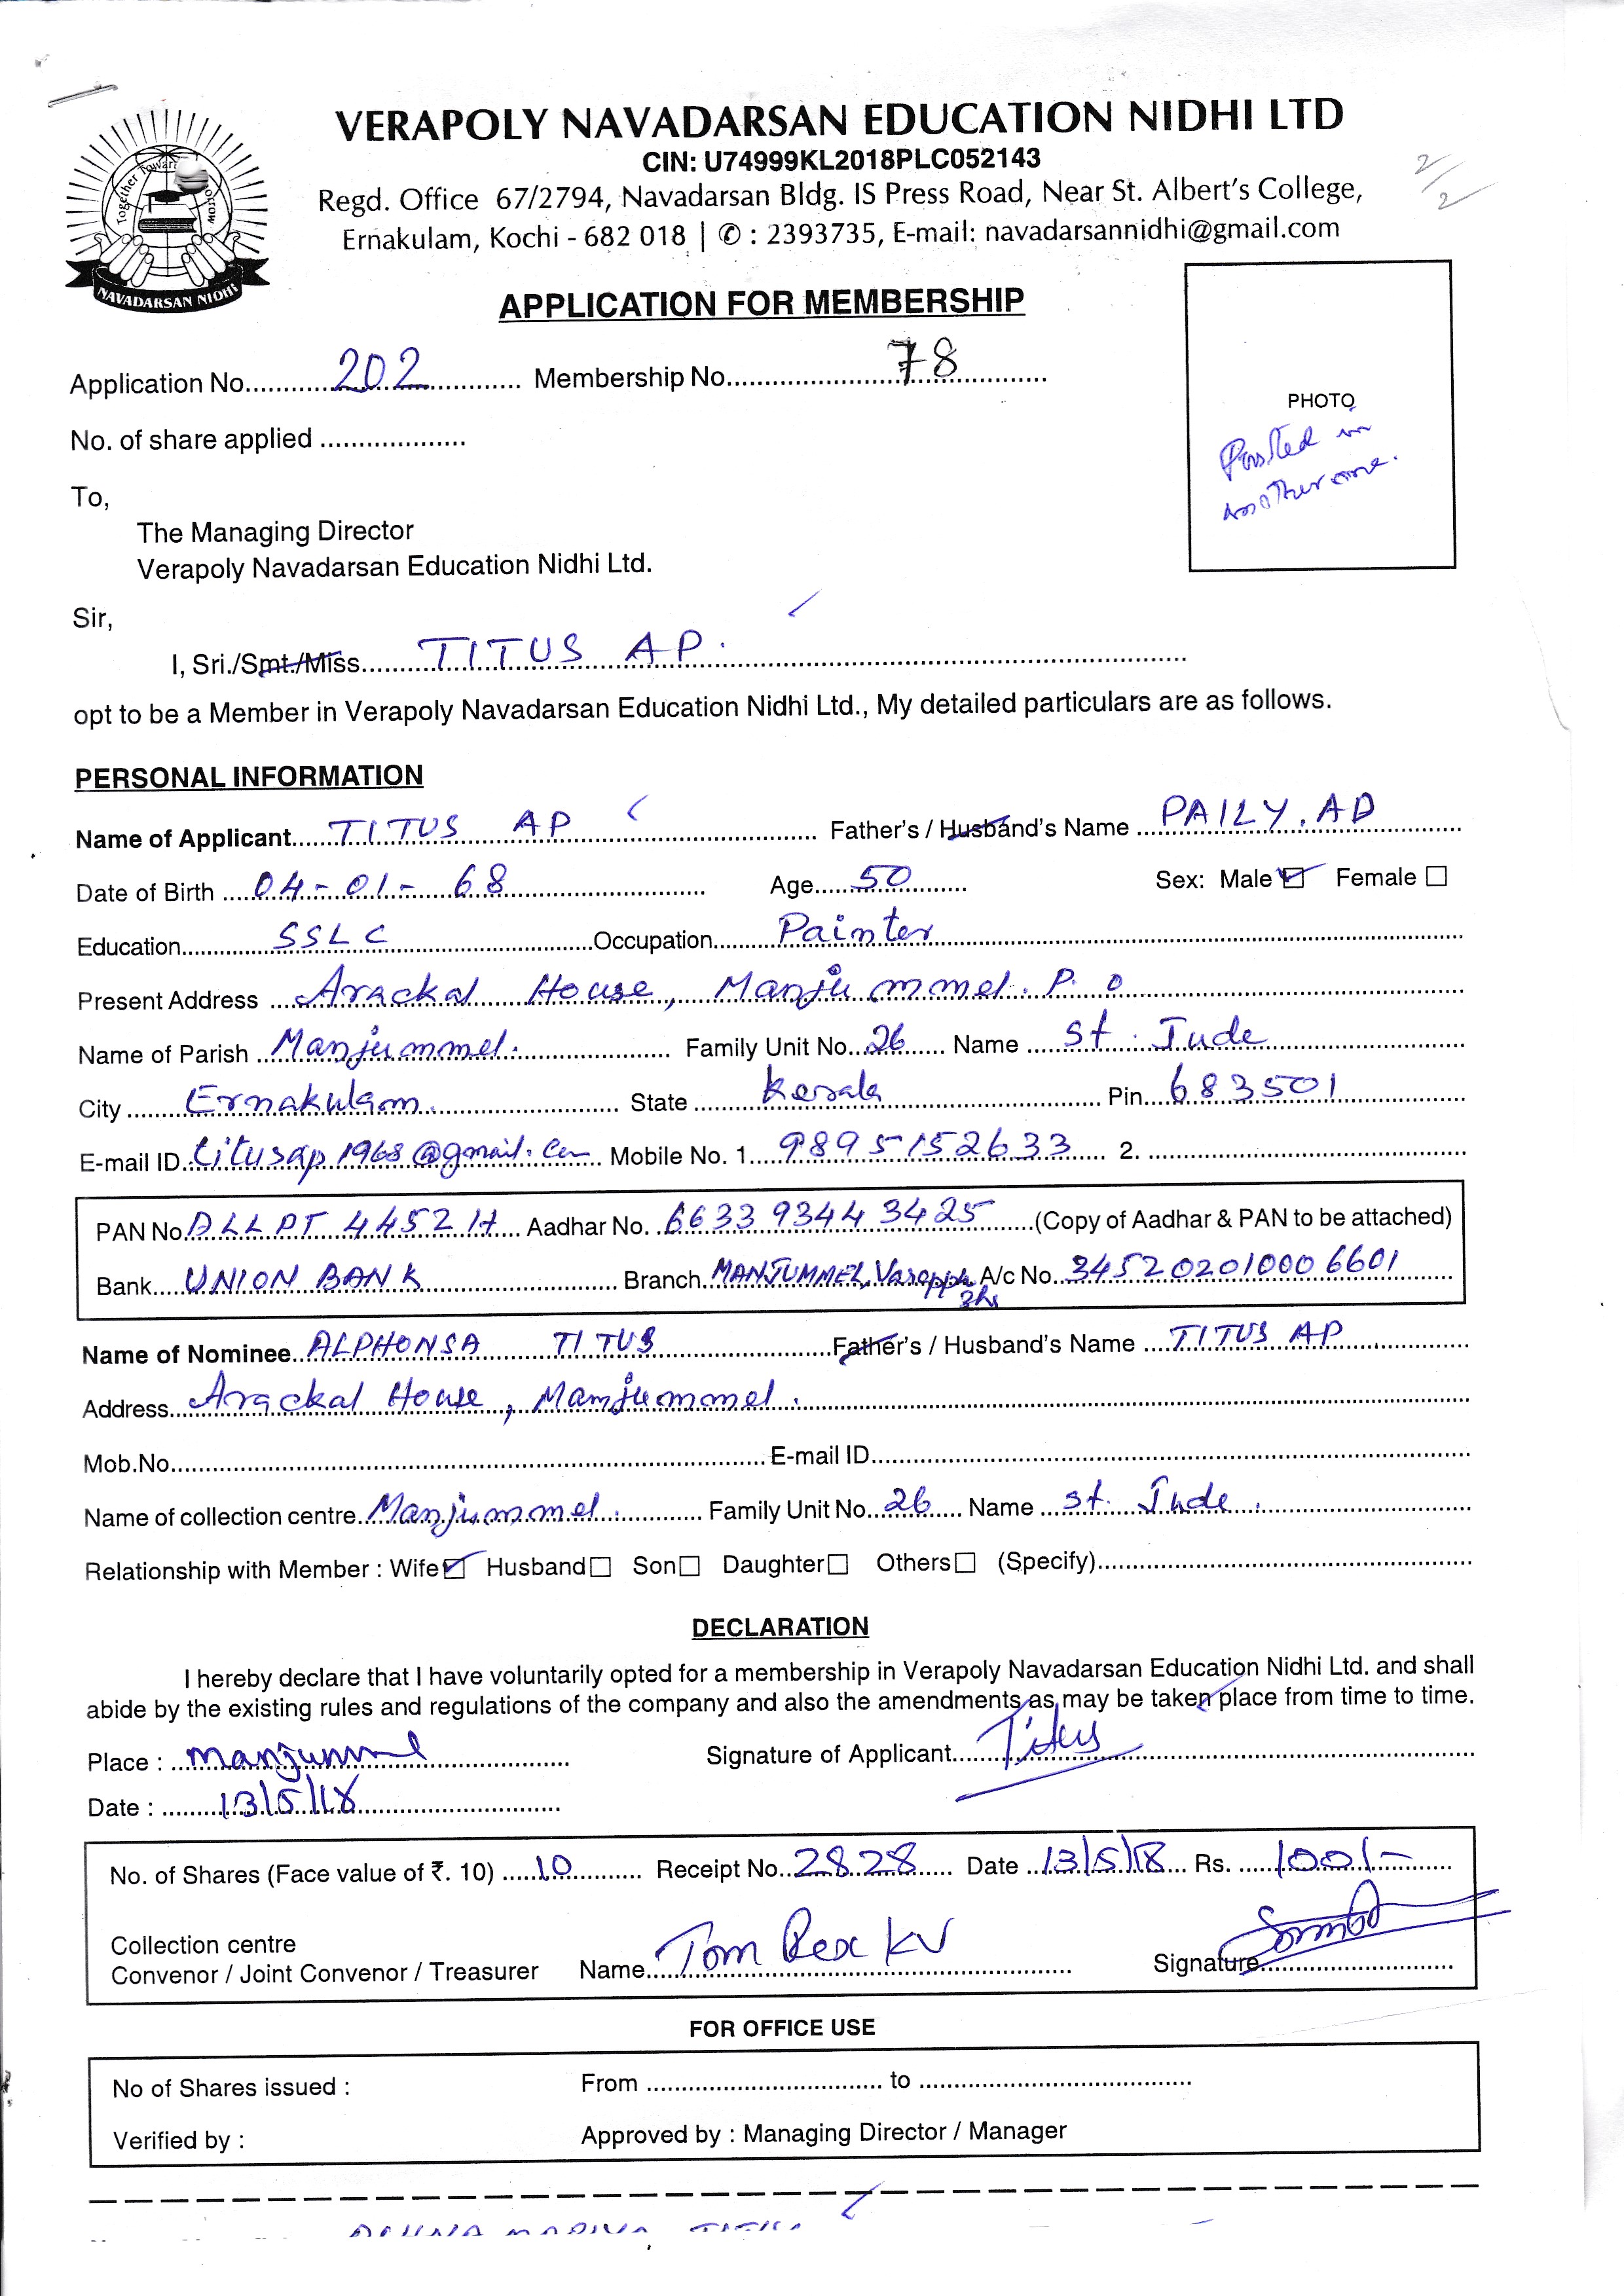 VERAPOLY NAVADARSAN EDUCATION NIDHI LTD
CIN: U74999KL2018PLC052143
Regd. Office 67/2794, Navadarsan Bldg. IS Press Road, Near St. Albert's College,
Ernakulam, Kochi - 682 018 | ✆ : 2393735, E-mail: navadarsannidhi@gmail.com
2/2
Together Towards
NAVADARSAN NIDHI
APPLICATION FOR MEMBERSHIP
Application No. 202 Membership No. 78
No. of share applied
PHOTO
Pasted in
another one.
To,
The Managing Director
Verapoly Navadarsan Education Nidhi Ltd.
Sir,
I, Sri./Smt./Miss TITUS AP.
opt to be a Member in Verapoly Navadarsan Education Nidhi Ltd., My detailed particulars are as follows.
PERSONAL INFORMATION
Name of Applicant TITUS AP Father's / Husband's Name PAILY. AD
Date of Birth 04-01-68 Age 50 Sex: Male ☑ Female ☐
Education SSLC Occupation Painter
Present Address Arackal House, Manjummel. P. O
Name of Parish Manjummel. Family Unit No. 26 Name St. Jude
City Ernakulam. State Kerala Pin 683501
E-mail ID titusap1968@gmail.com Mobile No. 1. 9895152633 2.
PAN No. DLLPT 4452H Aadhar No. 6633 9344 3425 (Copy of Aadhar & PAN to be attached)
Bank UNION BANK Branch MANJUMMEL, A/c No. 345202010006601
Name of Nominee ALPHONSA TITUS Father's / Husband's Name TITUS AP
Address Arackal House, Manjummel.
Mob.No. E-mail ID
Name of collection centre Manjummel. Family Unit No. 26 Name St. Jude.
Relationship with Member : Wife ☑ Husband ☐ Son ☐ Daughter ☐ Others ☐ (Specify)
DECLARATION
I hereby declare that I have voluntarily opted for a membership in Verapoly Navadarsan Education Nidhi Ltd. and shall
abide by the existing rules and regulations of the company and also the amendments as may be taken place from time to time.
Place : Manjummel Signature of Applicant Titus
Date : 13/5/18
No. of Shares (Face value of ₹. 10) 10 Receipt No. 2828 Date 13/5/18 Rs. 100/-
Collection centre
Convenor / Joint Convenor / Treasurer Name Tom Rex KV Signature
FOR OFFICE USE
No of Shares issued : From to
Verified by : Approved by : Managing Director / Manager